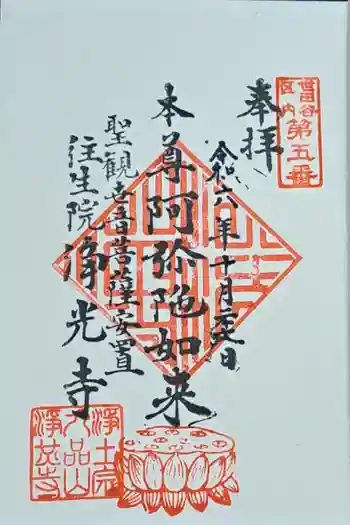 世田谷
区内
第五番
奉拝
令和六年十月二六日
本尊阿弥陀如来
聖観世音菩薩安置
往生院
浄光寺
浄土宗
九品山
浄光寺